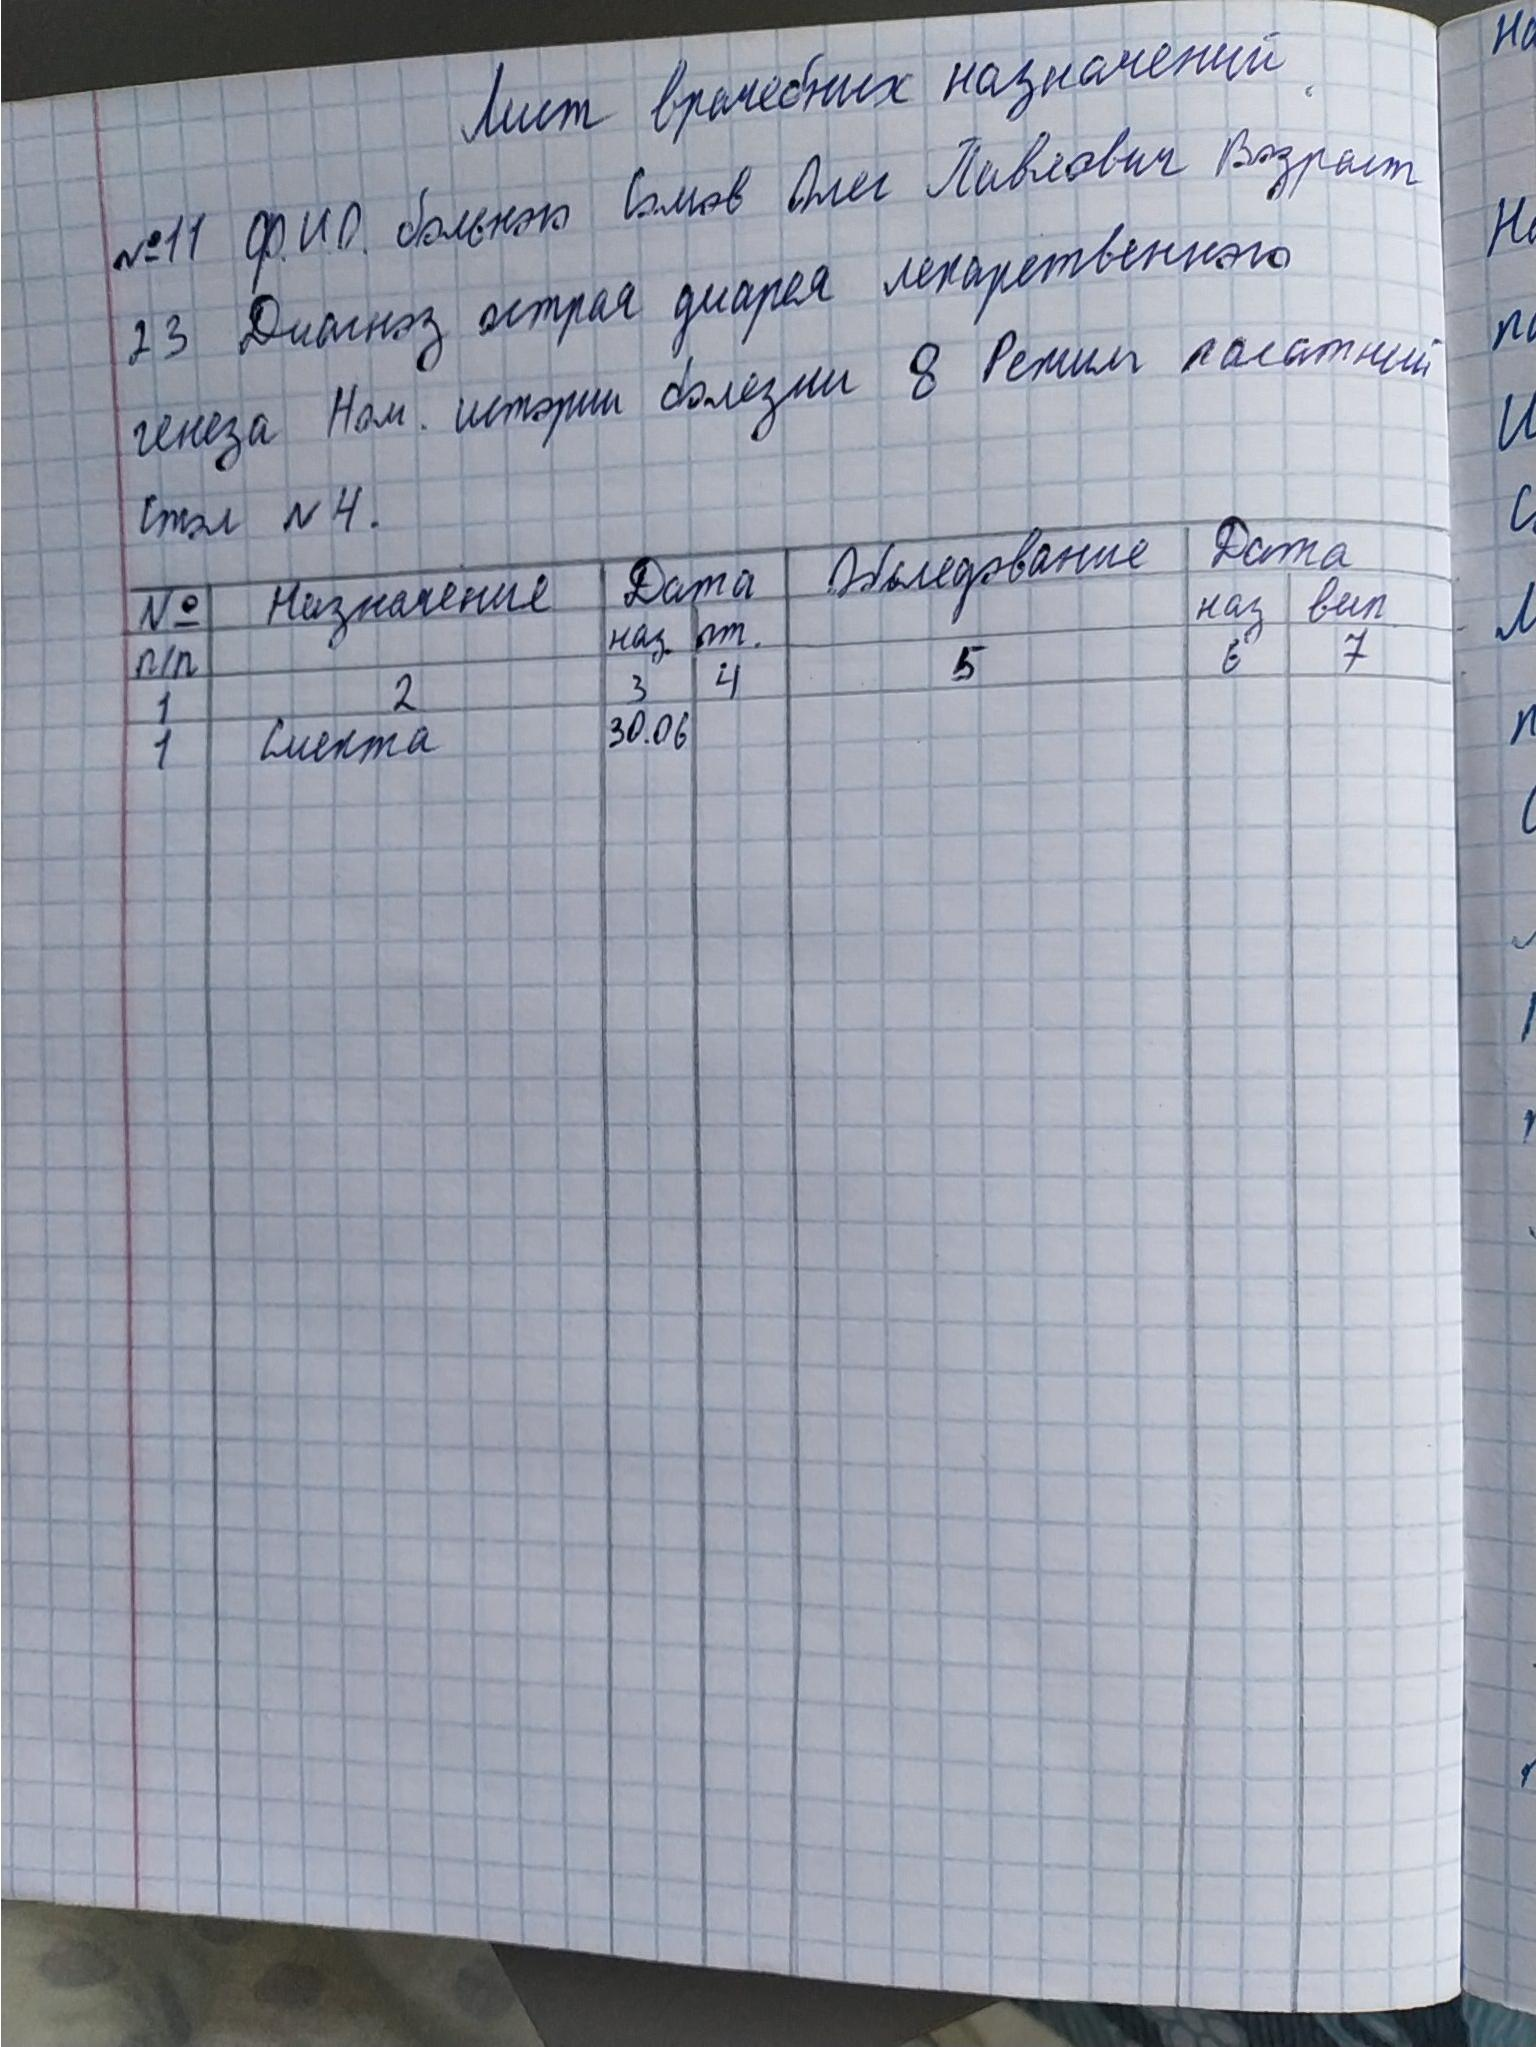 Лист врачебных назначений.
№11 Ф.И.О. больного Сомов Олег Павлович Возраст
23 Диагноз острая диарея лекарственного
генеза Ном. истории болезни 8 Режим палатный
Стол N 4.
№ п/п Назначение Дата Обследование Дата
наз. от. наз вып
1 2 3 4 5 6 7
1 Смекта 30.06